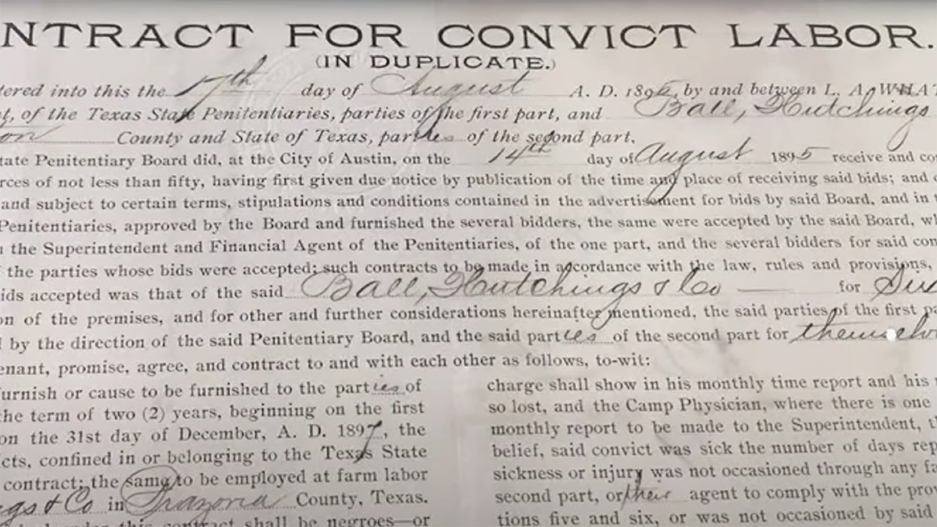 NTRACT FOR CONVICT LABOR.
(IN DUPLICATE.)
tered into this the 17th day of August A. D. 1895, by and between L. A. WHAT
t, of the Texas State Penitentiaries, parties of the first part, and Ball, Hutchings
on County and State of Texas, parties of the second part,
tate Penitentiary Board did, at the City of Austin, on the 14th day of August 1895 receive and co
rces of not less than fifty, having first given due notice by publication of the time and place of receiving said bids; and
and subject to certain terms, stipulations and conditions contained in the advertisement for bids by said Board, and in t
Penitentiaries, approved by the Board and furnished the several bidders, the same were accepted by the said Board, wh
n the Superintendent and Financial Agent of the Penitentiaries, of the one part, and the several bidders for said con
f the parties whose bids were accepted; such contracts to be made in accordance with the law, rules and provisions,
ids accepted was that of the said Ball, Hutchings & Co — for
on of the premises, and for other and further considerations hereinafter mentioned, the said parties of the first pa
l by the direction of the said Penitentiary Board, and the said parties of the second part for themselv
enant, promise, agree, and contract to and with each other as follows, to-wit:
furnish or cause to be furnished to the parties of
the term of two (2) years, beginning on the first
on the 31st day of December, A. D. 1897, the
cts, confined in or belonging to the Texas State
contract; the same to be employed at farm labor
ngs & Co in Brazoria County, Texas.
under this contract shall be negroes—or
charge shall show in his monthly time report and his
so lost, and the Camp Physician, where there is one
monthly report to be made to the Superintendent, th
belief, said convict was sick the number of days rep
sickness or injury was not occasioned through any fa
second part, or their agent to comply with the prov
tions five and six, or was not occasioned by said